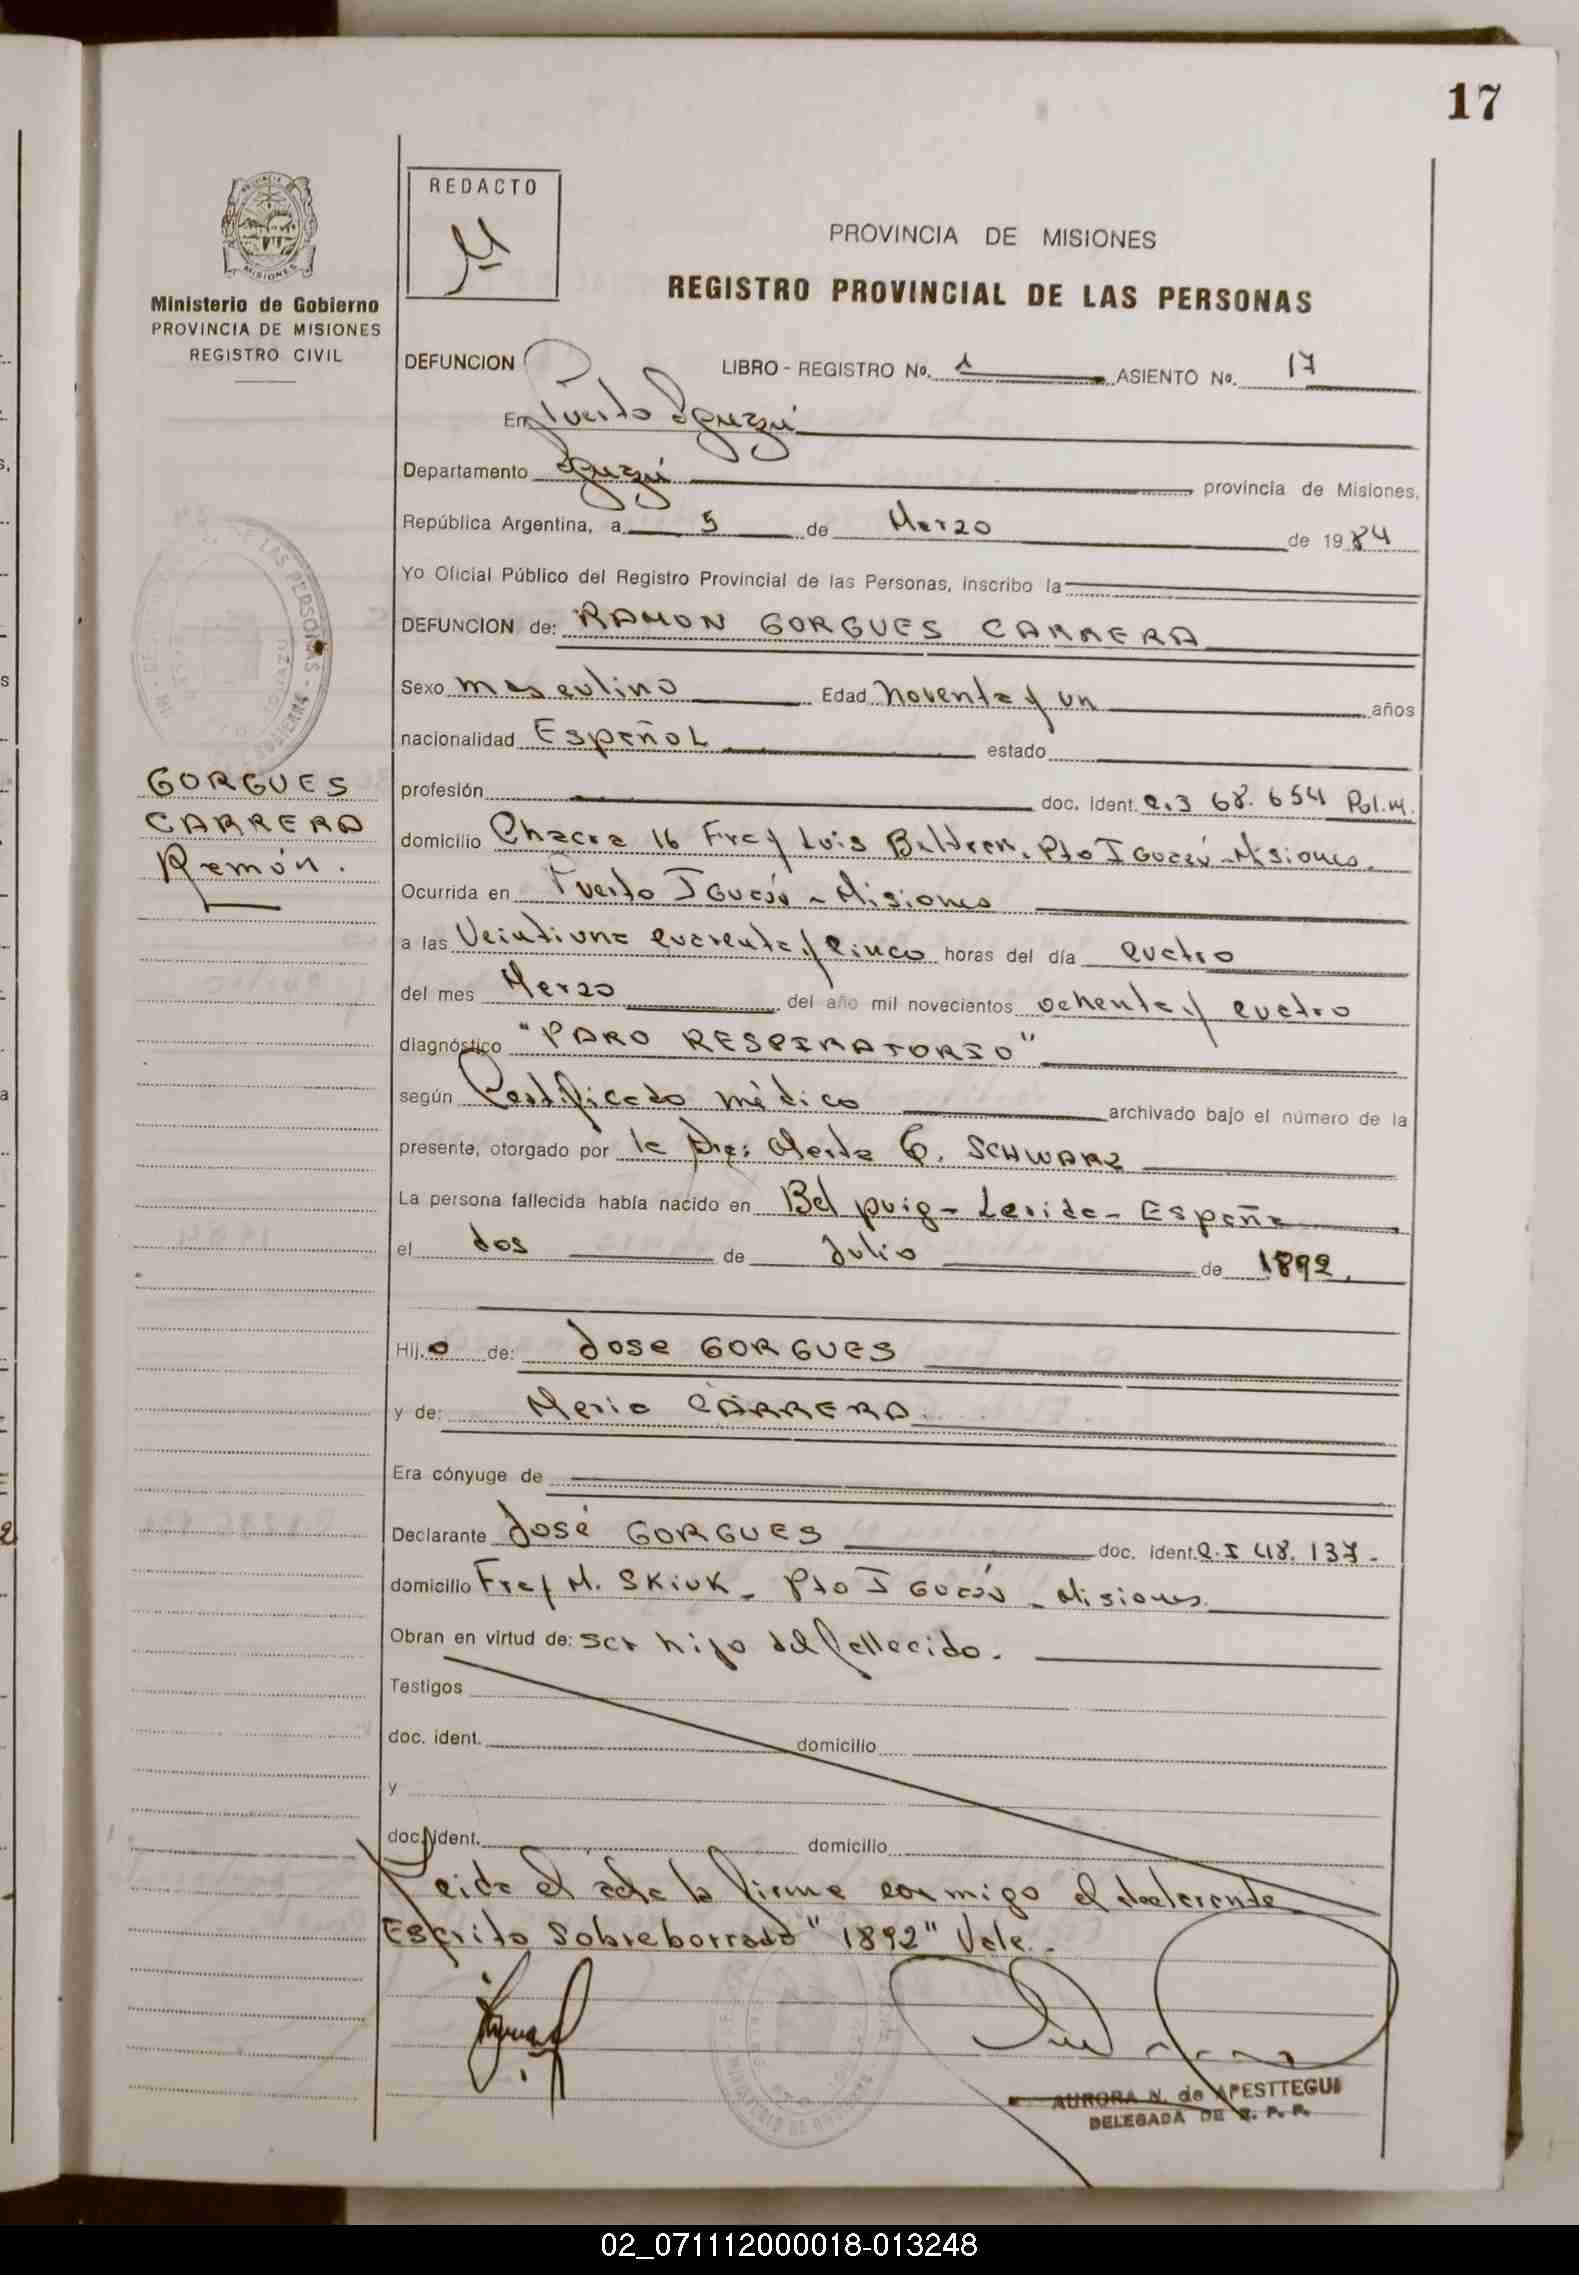 17
REDACTO
PROVINCIA DE MISIONES
REGISTRO PROVINCIAL DE LAS PERSONAS
MISIONES
Ministerio de Gobierno
PROVINCIA DE MISIONES
REGISTRO CIVIL
DEFUNCION LIBRO - REGISTRO No. 1 ASIENTO No. 17
En Puerto Iguazú
Departamento Iguazú provincia de Misiones,
República Argentina, a 5 de Marzo de 1984
Yo Oficial Público del Registro Provincial de las Personas, inscribo la
DEFUNCION de: RAMON GORGUES CARRERA
Sexo masculino Edad noventa y un años
nacionalidad Español estado
GORGUES
CARRERA
Ramón.
profesión doc. ident. C.I 68.654 Pol.M.
domicilio Chacra 16 Fray Luis Beltran. Pto Iguazú - Misiones.
Ocurrida en Puerto Iguazú - Misiones
a las Veintiuna cuarenta y cinco horas del día cuatro
del mes Marzo del año mil novecientos ochenta y cuatro
diagnóstico "PARO RESPIRATORIO"
según Certificado médico archivado bajo el número de la
presente, otorgado por la Dra: Marta SCHWARZ
La persona fallecida había nacido en Bel puig - Lerida - España
el dos de Julio de 1892.
Hijo de: Jose GORGUES
y de: Maria CARRERA
Era cónyuge de
Declarante José GORGUES doc. ident. C.I 48.137.-
domicilio Fray M. SKIUK - Pto Iguazú - Misiones
Obran en virtud de: ser hijo del fallecido.
Testigos
doc. ident. domicilio
y
doc. ident. domicilio
Leida el acta la firma conmigo el declarante
Escrito Sobreborrado "1892" Vale.
AURORA N. de APESTTEGUI
DELEGADA DE R. P. P.
02_071112000018-013248